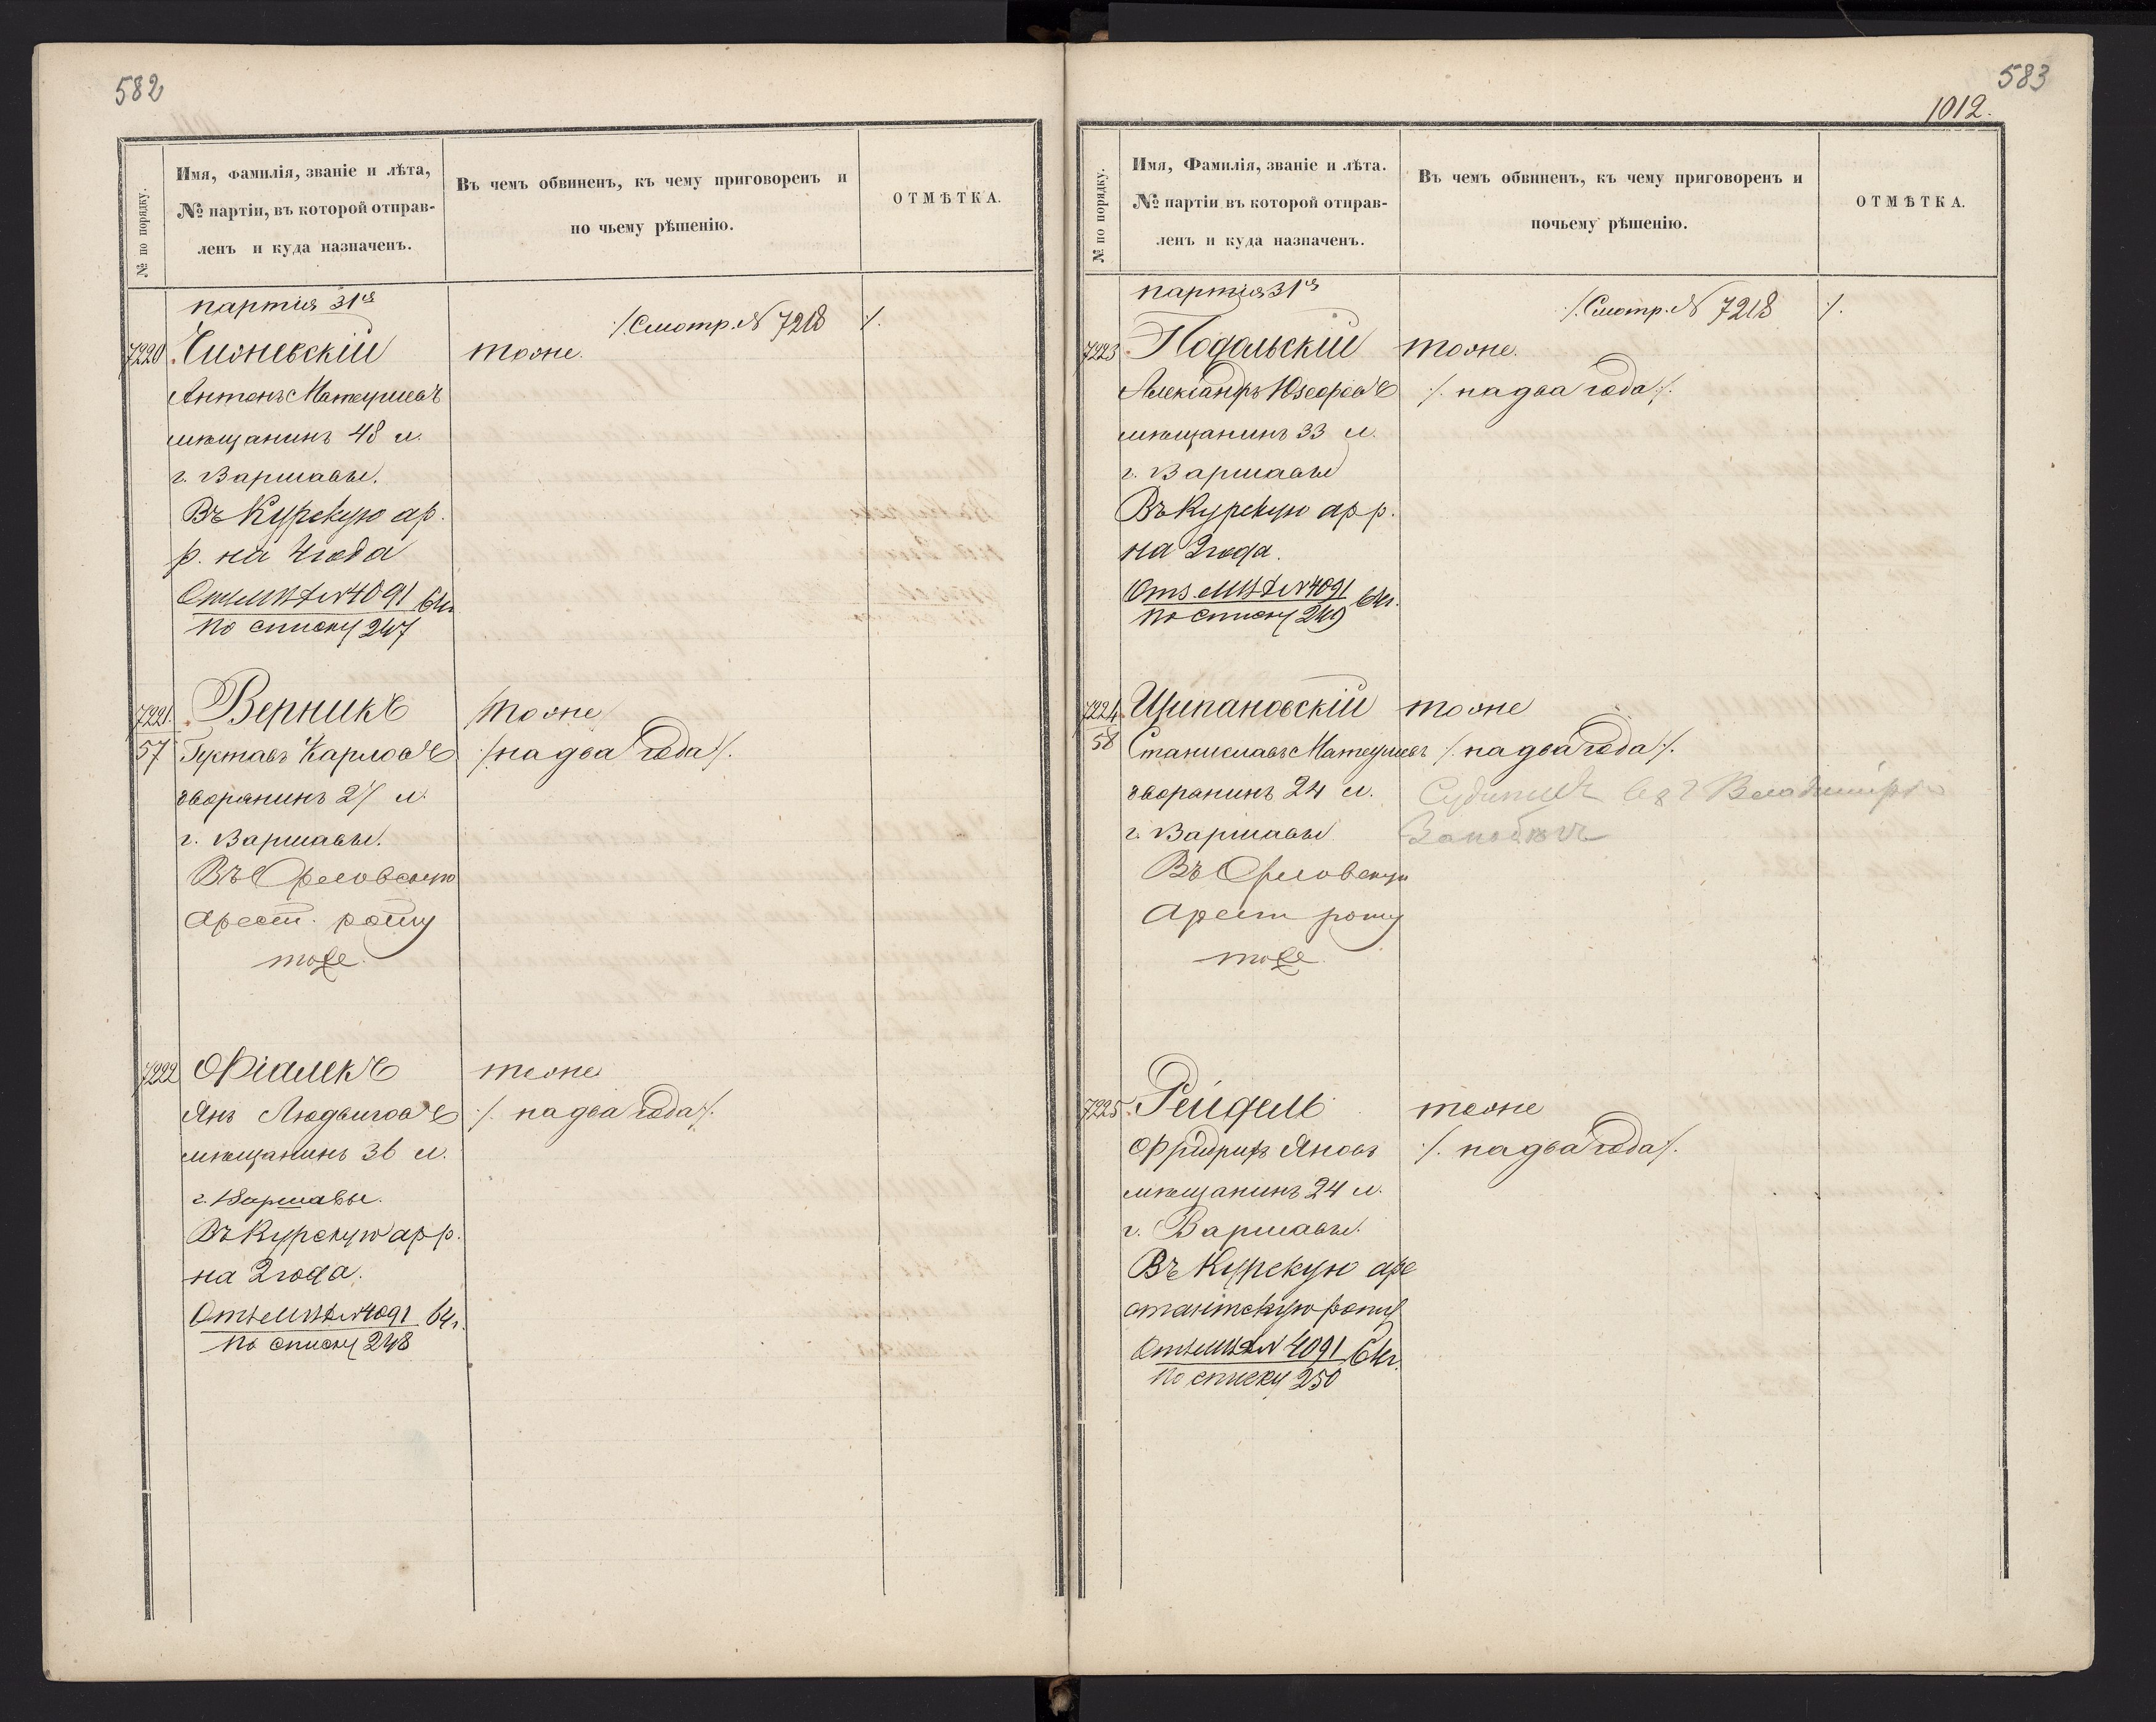 582
№ по порядку.
Имя, фамилія, званіе и лѣта,
№ партіи, въ которой отправ-
ленъ и куда назначенъ.
Въ чемъ обвиненъ, къ чему приговоренъ и
по чьему рѣшенію.
ОТМѢТКА.
партія 31я
/.Смотр. N 7218 /.
7220. Чижевскій тоже.
Антонъ Матеушевъ
мѣщанинъ 48 л.
г. Варшавы.
Въ Курскую ар.
р. на 4 года
N 4091 64 г.
По списку 247
7221. Верникъ тоже
57 Густавъ Карловъ /. на два года /.
дворянинъ 27 л.
г. Варшавы.
Въ Орловскую
Арест. роту
тоже.
7222 Фіалекъ тоже
Янъ Людвиговъ /. на два года /.
мѣщанинъ 36 л.
г. Варшавы.
Въ Курскую ар р.
на 2 года.
N 4091 64 г.
По списку 248
583
1012.
№ по порядку.
Имя, Фамилія, званіе и лѣта.
№ партіи въ которой отправ-
ленъ и куда назначенъ.
Въ чемъ обвиненъ, къ чему приговоренъ и
почьему рѣшенію.
ОТМѢТКА.
партія 31я
/.Смотр. N 7218 /.
7223. Подольскій тоже.
Александръ Юзефовъ /. на два года /.
мѣщанинъ 33 л.
г. Варшавы
Въ Курскую ар р.
на 2 года.
N 4091 64 г.
По списку 249
7224. Щипановскій тоже
58 Станиславъ Матеушевъ /. на два года /.
дворанинъ 24 л.
г. Варшавы
Въ Орловскую
Арест роту
тоже.
7225. Рейдель тоже
Фридрихъ Яновъ /. на два года /.
мѣщанинъ 24 л.
г. Варшавы.
Въ Курскую аре
стантскую роту
N 4091 64 г.
По списку 250